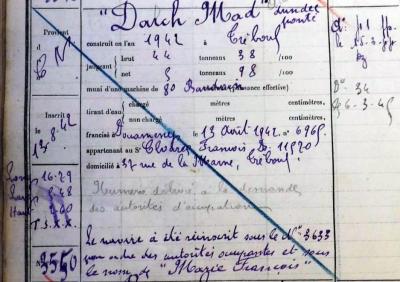 "Darch Mad"
ponté
Provient
d
construit en l'an 1942 à Tréboul
jaugeant
brut 44 tonneaux 38 /100
net tonneaux 98 /100
muni d'une machine de 80 (puissance effective)
Dn 34
6-3-45
Inscrit
le 8-42
tirant d'eau
chargé mètres centimètres,
non chargé mètres centimètres,
francisé à Douarnenez le 13 Août 1942 n° 6965
appartenant au Sr François,
domicilié à 37 rue de la Marne, Tréboul
Long 16.29
Larg 5.48
Haut 2.60
T.S.XX
Numéro délivré à la demande
des autorités d'occupation
Le navire a été réinscrit sous le N° 3633
par ordre des autorités occupantes et sous
le nom de "Marie François"
N° 3550